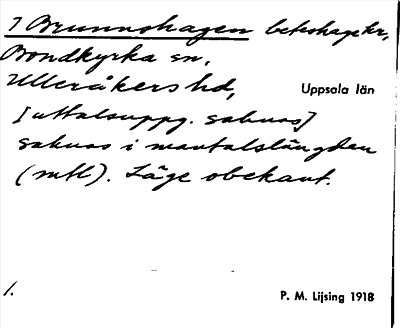 7 Brunnshagen beteshage kr,
Bondkyrka sn,
Ulleråkers hd,
Uppsala län
[uttalsuppg. saknas]
saknas i mantalslängden
(mtl). Läge obekant.
1.
P. M. Lijsing 1918